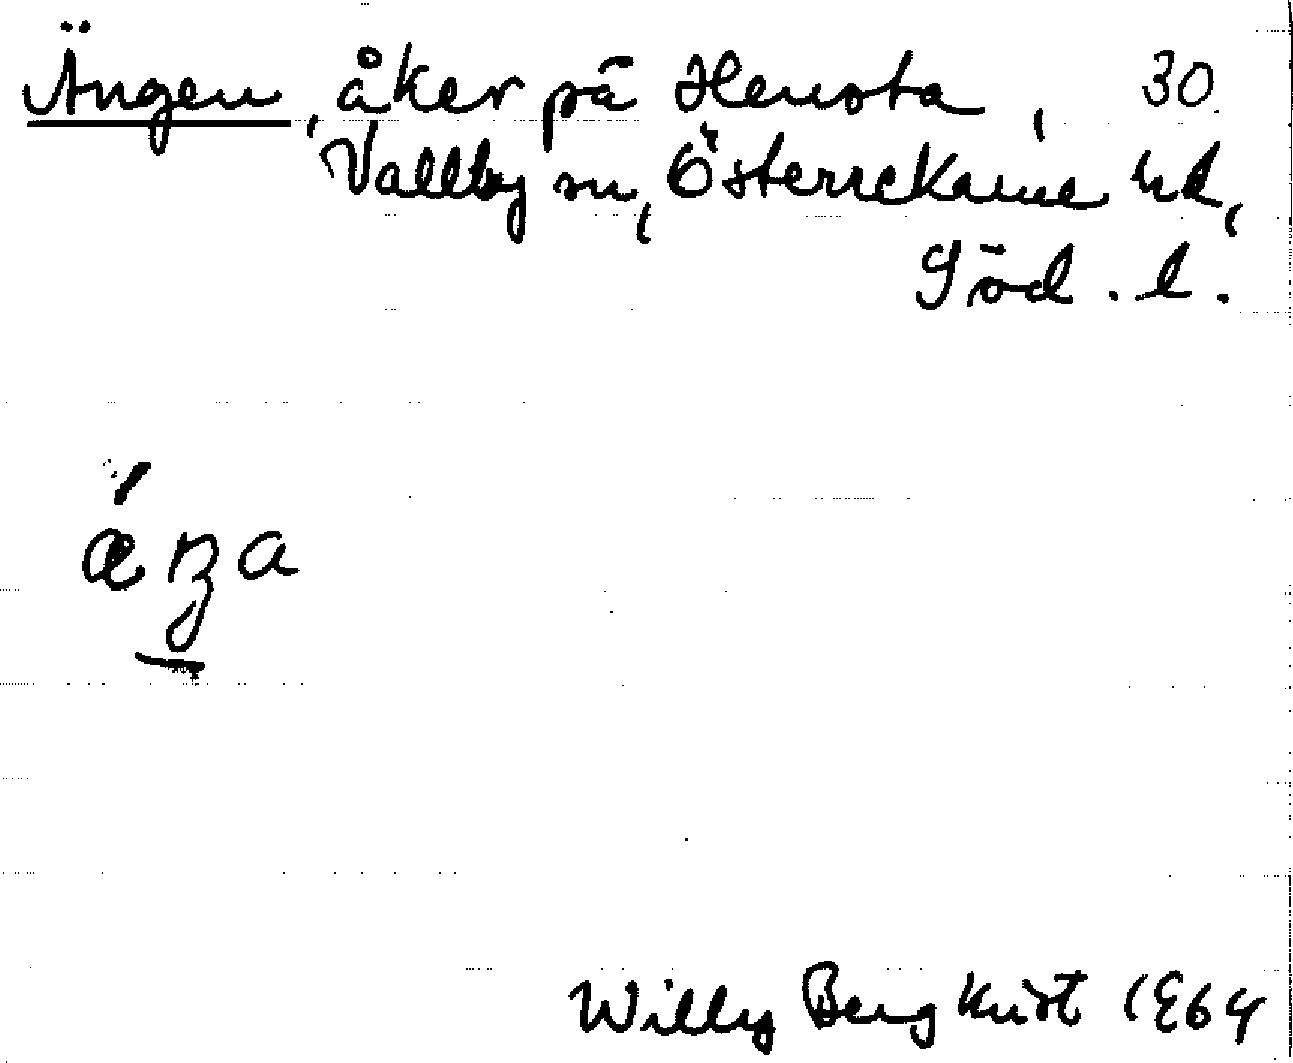 Ängen, åker på Hensta, 30.
Vallby sn, Österrekarne hd,
Söd. l.
Willy Bergkvist 1964